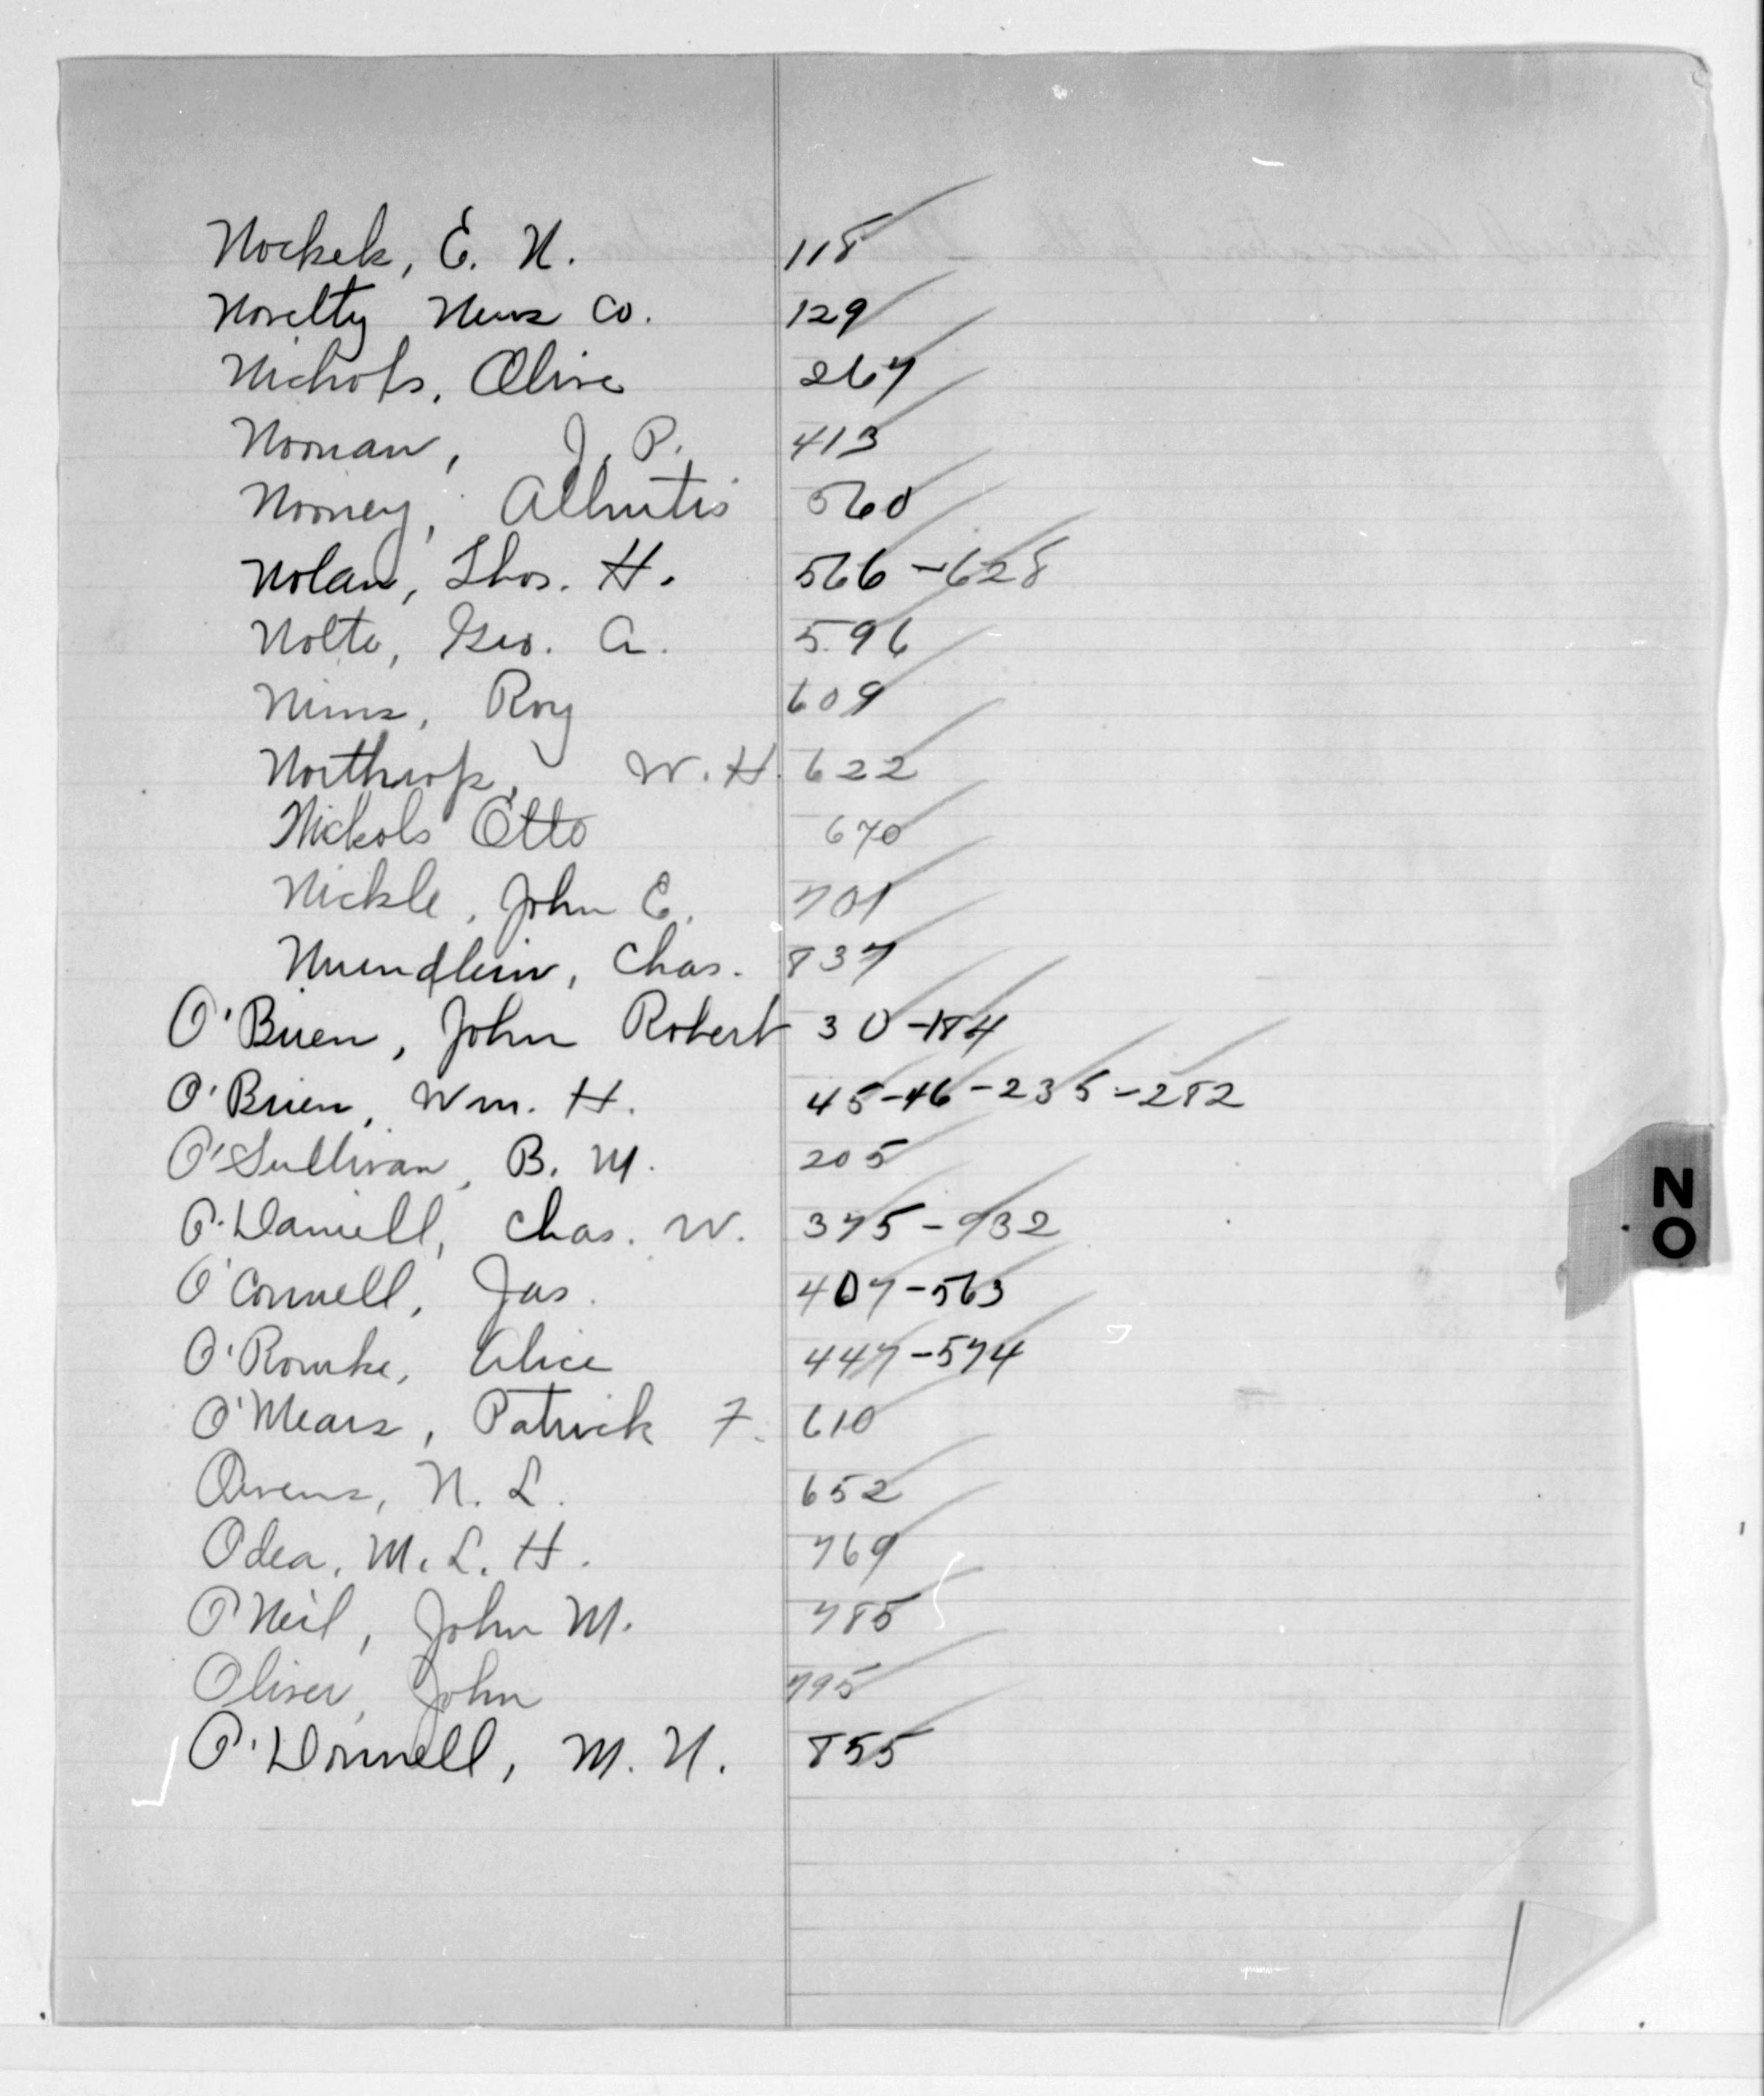 Nockek, E. N. 118
Novelty News Co. 129
Nichols, Olive 267
Noonan, J. P. 413
Nooney, Alburtis 560
Nolan, Thos. H. 566-628
Nolte, Geo. A. 596
Nims, Roy 609
Northrop, W. H. 622
Nickols Otto 670
Nickle, John E. 701
Nuendlein, Chas. 837
O'Brien, John Robert 30-184
O'Brien, Wm. H. 45-46-235-282
O'Sullivan, B. M. 205
O'Daniell, Chas. W. 375-932
O'Connell, Jas. 407-563
O'Rourke, Alice 447-574
O'Mears, Patrick F. 610
Owens, N. L. 652
Odea, M. L. H. 769
O'Neil, John M. 785
Oliver, John 795
O'Donnell, M. N. 855
NO